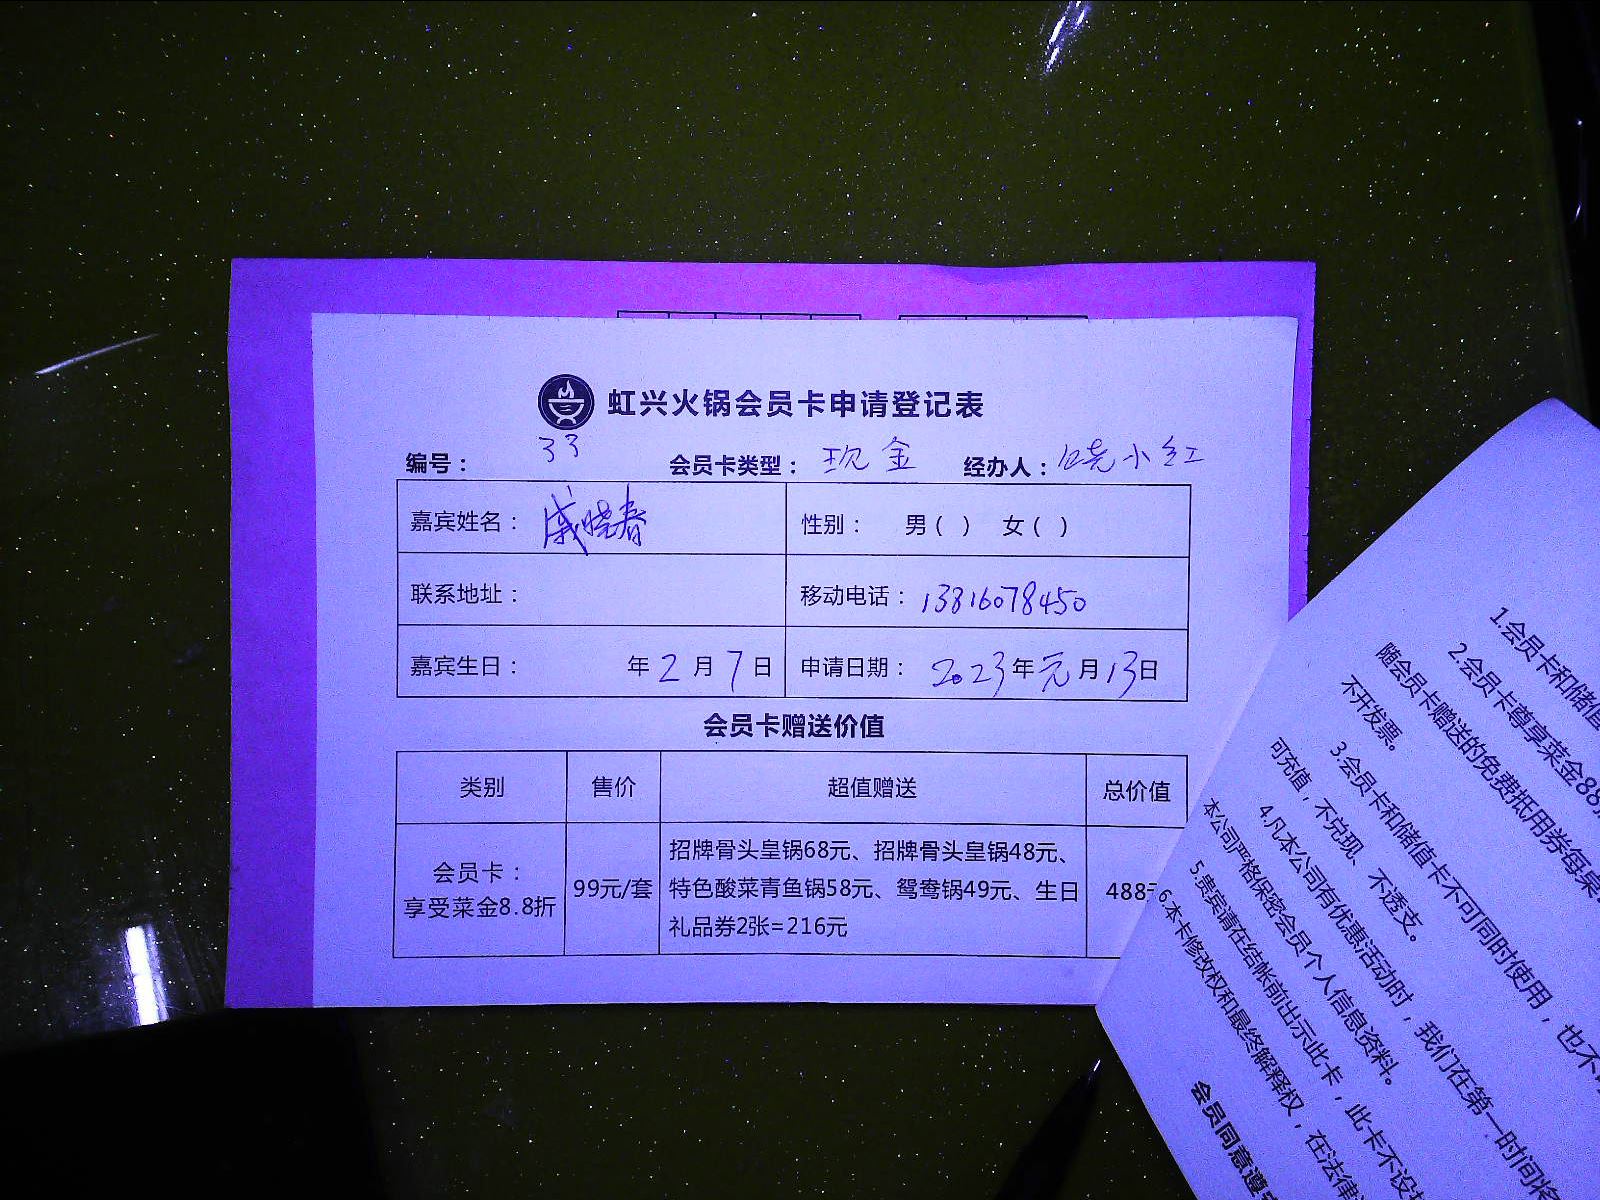 虹兴火锅会员卡申请登记表
编号： 33 会员卡类型： 现金 经办人： 晓小红
嘉宾姓名： 戚晓春 性别： 男（ ） 女（ ）
联系地址： 移动电话： 13816078450
嘉宾生日： 年 2 月 7 日 申请日期： 2023 年 元 月 13 日
会员卡赠送价值
类别 售价 超值赠送 总价值
会员卡：
享受菜金8.8折
99元/套
招牌骨头皇锅68元、招牌骨头皇锅48元、
特色酸菜青鱼锅58元、鸳鸯锅49元、生日
礼品券2张=216元
488
1.会员卡和储值
2.会员卡尊享菜金88
随会员卡赠送的免费抵用券每桌
不开发票。
3.会员卡和储值卡不可同时使用，也不
可充值，不兑现、不透支。
4.凡本公司有优惠活动时，我们在第一时间将
本公司严格保密会员个人信息资料。
5.贵宾请在结帐前出示此卡，此卡不设
6.本卡修改权和最终解释权，在法律
会员同意遵